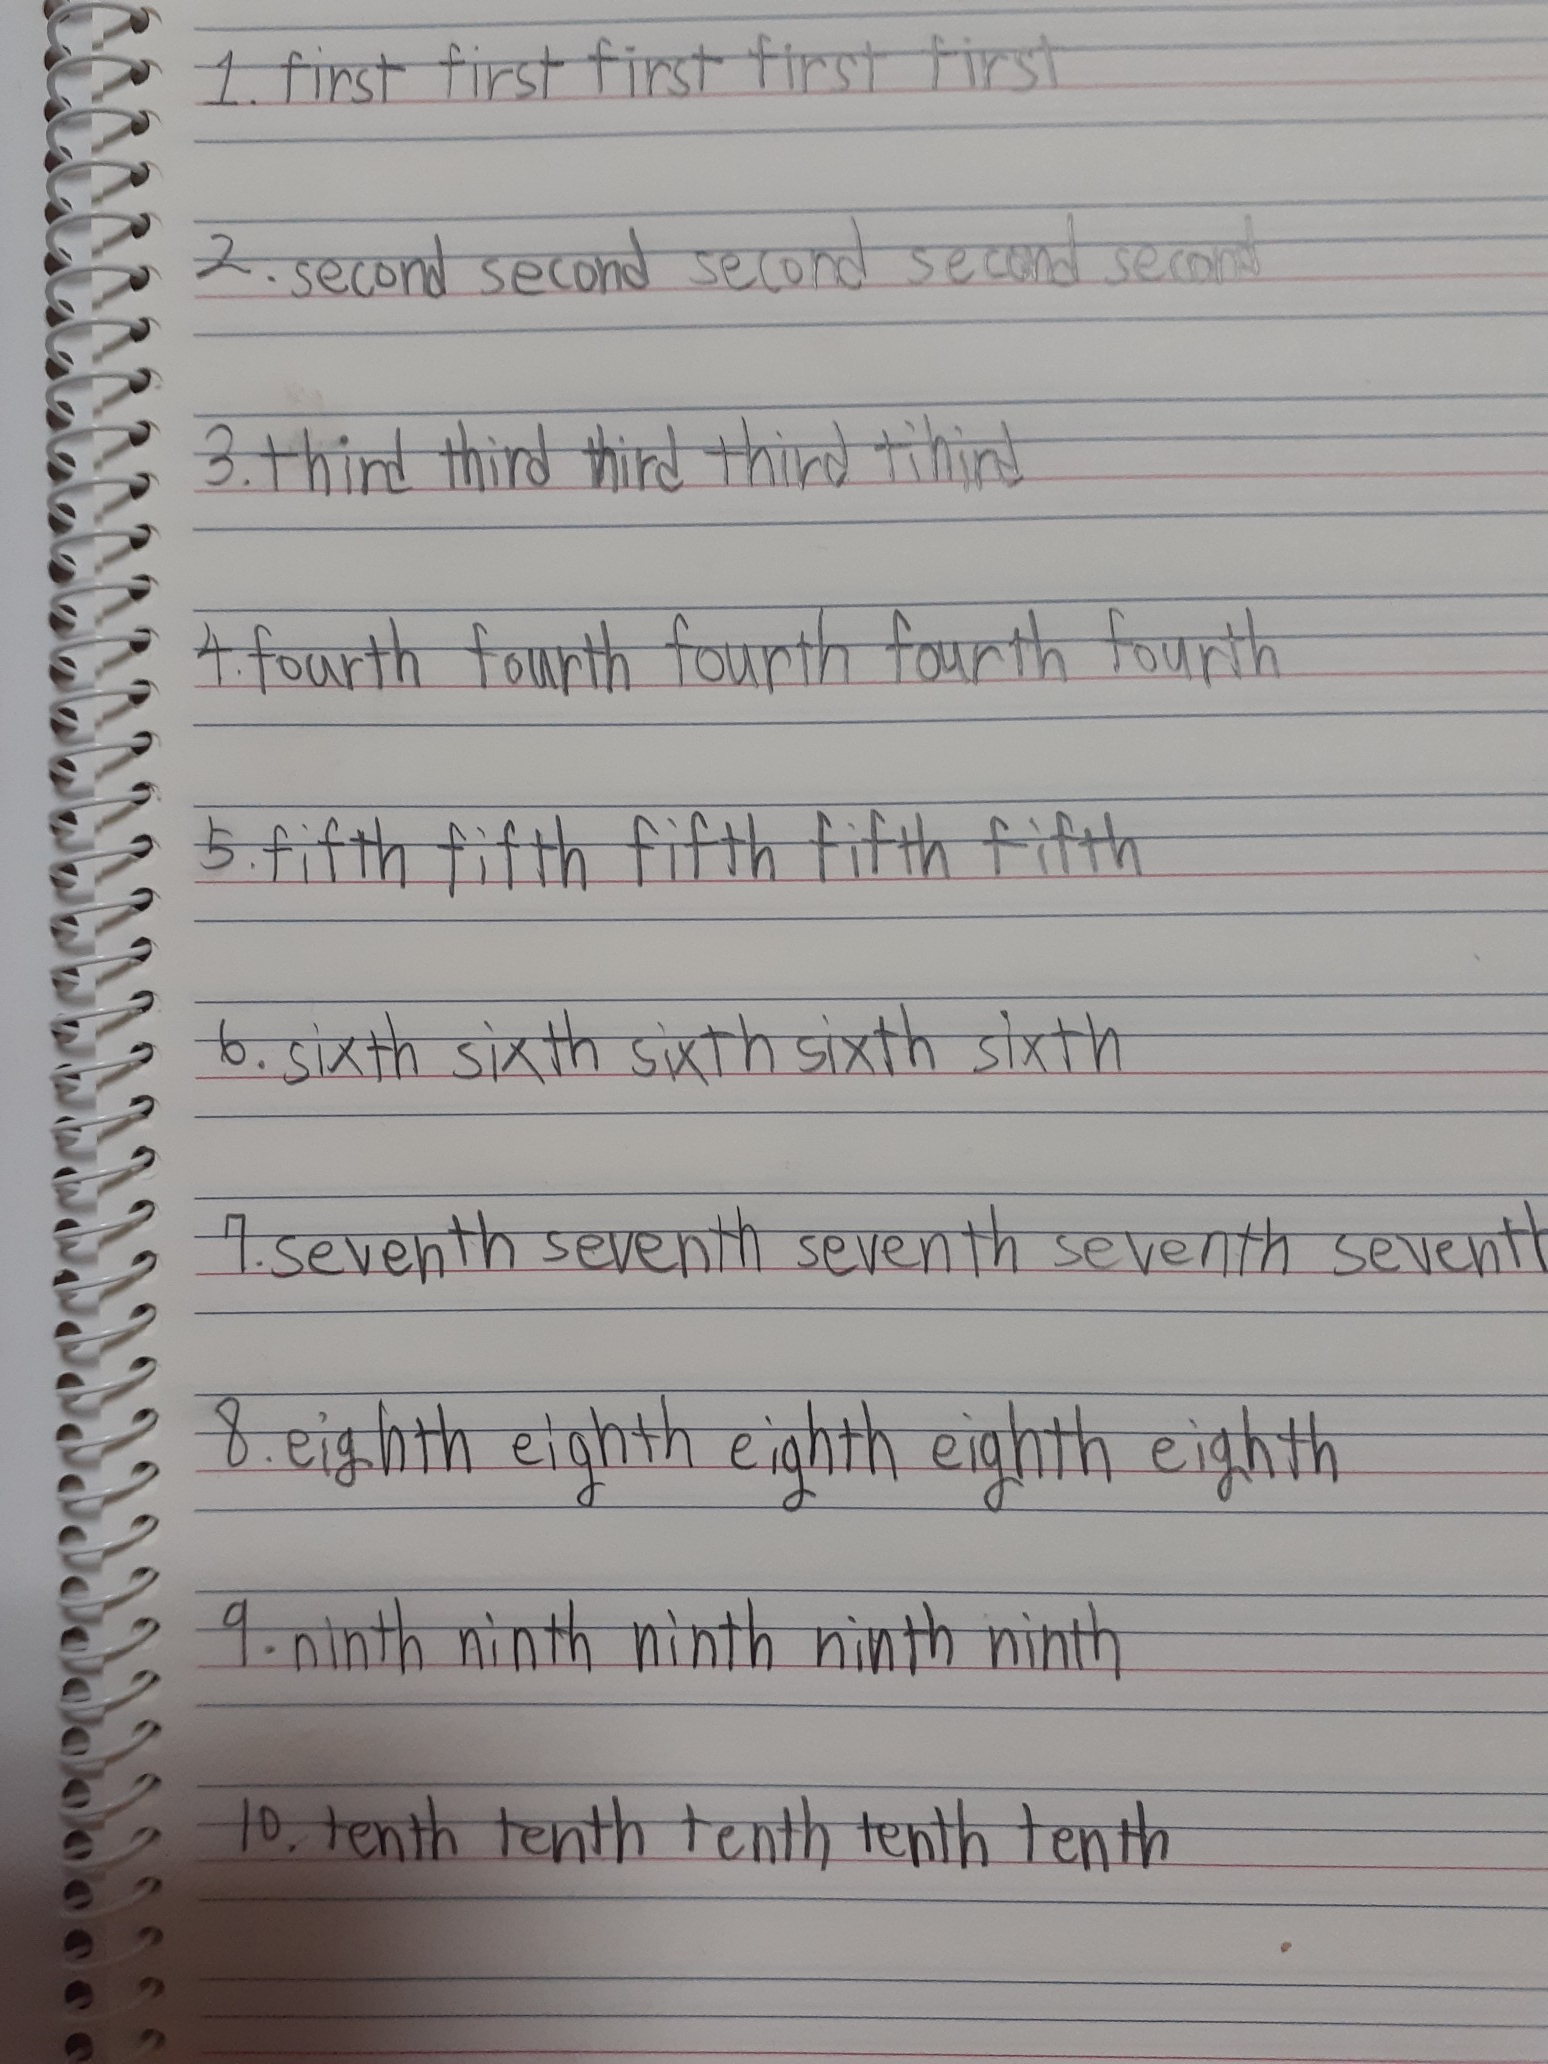 1. first first first first first
2. second second second second second
3. third third third third tihird
4. fourth fourth fourth fourth fourth
5. fifth fifth fifth fifth fifth
6. sixth sixth sixth sixth sixth
7. seventh seventh seventh seventh seventh
8. eighth eighth eighth eighth eighth
9. ninth ninth ninth ninth ninth
10. tenth tenth tenth tenth tenth